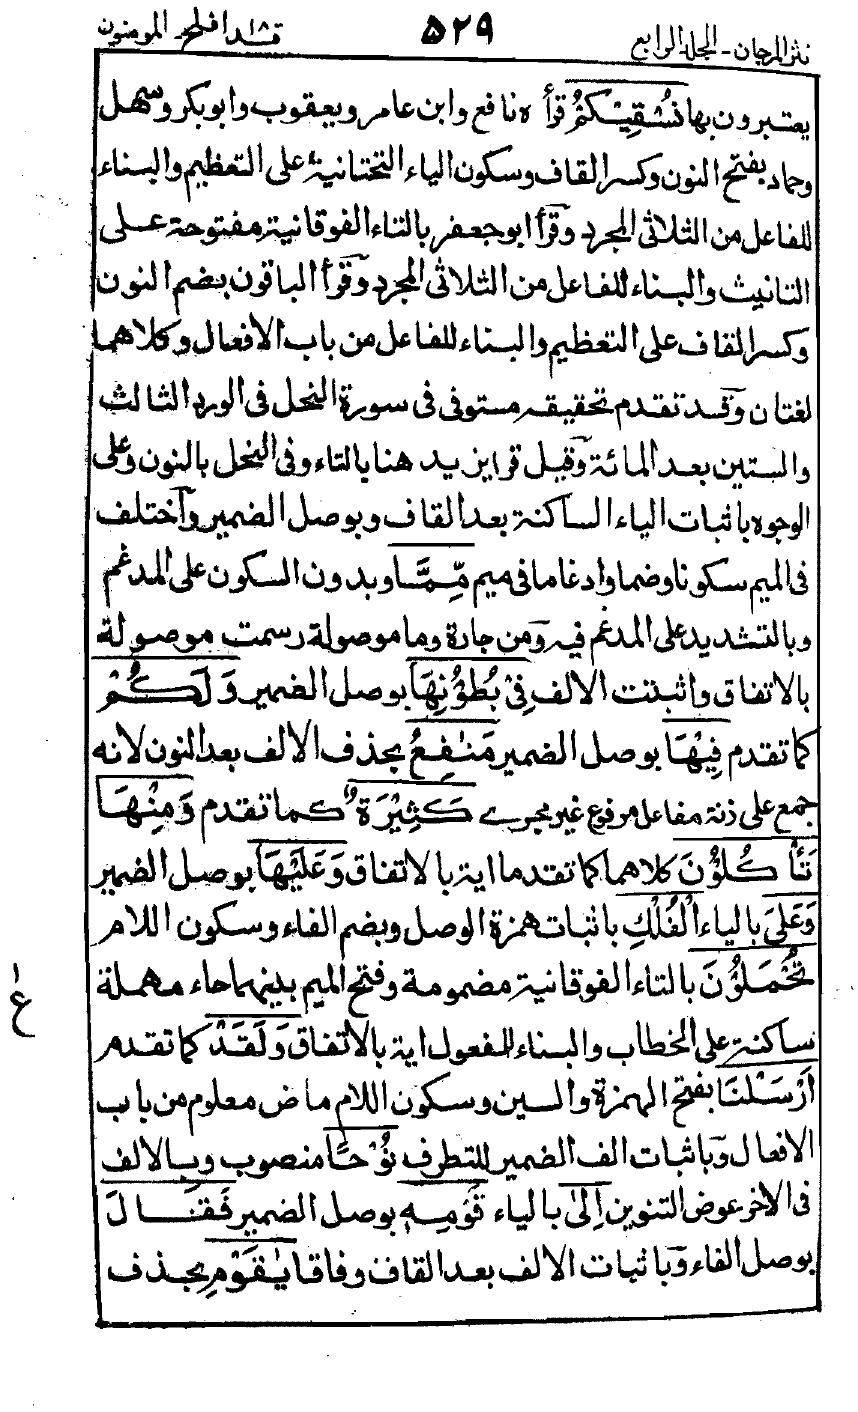 نثر المرجان - المجلد الرابع ٥٢٩ قد افلح ١٨ المومنون
يعتبرون بها نُسْقِيْكُمْ قرأه نافع وابن عامر ويعقوب وابوبكر وسهل
وحماد بفتح النون وكسر القاف وسكون الياء التحتانية على التعظيم والبناء
للفاعل من الثلاثى المجرد وقرأ ابو جعفر بالتاء الفوقانية مفتوحة على
التانيث والبناء للفاعل من الثلاثى المجرد وقرأ الباقون بضم النون
وكسر القاف على التعظيم والبناء للفاعل من باب الافعال وكلاهما
لغتان وقد تقدم تحقيقه مستوفى فى سورة النحل فى الورد الثالث
والستين بعد المائة وقيل قرا يزيد هنا بالتاء وفى النحل بالنون وعلى
الوجوه باثبات الياء الساكنة بعد القاف وبوصل الضمير واختلف
فى الميم سكونا وضما وادغاما فى ميم مِّمَّا وبدون السكون على المدغم
وبالتشديد على المدغم فيه ومن جارة وما موصولة رسمت موصولة
بالاتفاق واثبتت الالف فِىْ بُطُوْنِهَا بوصل الضمير وَلَكُمْ
كما تقدم فِيْهَا بوصل الضمير مَنٰفِعُ بحذف الالف بعد النون لانه
جمع على زنة مفاعل مرفوع غير مجرے كَثِيْرَةٌ كما تقدم وَمِنْهَا
تَأْكُلُوْنَ كلاهما كما تقدما اية بالاتفاق وَعَلَيْهَا بوصل الضمير
وَعَلَى بالياء الْفُلْكِ باثبات همزة الوصل وبضم الفاء وسكون اللام
تُحْمَلُوْنَ بالتاء الفوقانية مضمومة وفتح الميم بينهما حاء مهملة
ساكنة على الخطاب والبناء للمفعول اية بالاتفاق وَلَقَدْ كما تقدم
اَرْسَلْنَا بفتح الهمزة والسين وسكون اللام ماض معلوم من باب
الافعال وباثبات الف الضمير للتطرف نُوْحًا منصوب وبالالف
فى الاخر عوض التنوين اِلٰى بالياء قَوْمِهٖ بوصل الضمير فَقَالَ
بوصل الفاء وباثبات الالف بعد القاف وفاقا يٰقَوْمِ بحذف
ع